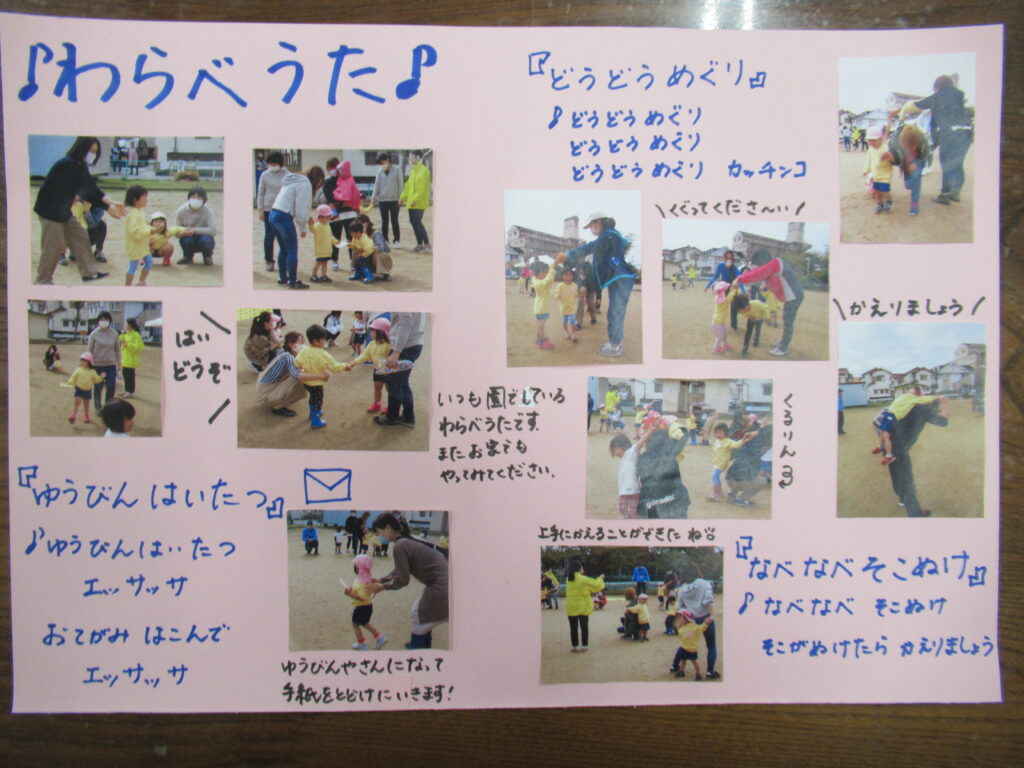 ♪わらべうた♪
はい
どうぞ
いつも園でしている
わらべうたです
またお家でも
やってみてください.
『ゆうびんはいたつ』
♪ゆうびんはいたつ
エッサッサ
おてがみ はこんで
エッサッサ
ゆうびんやさんになって
手紙をとどけにいきます!
『どうどうめぐり』
♪どうどうめぐり
どうどうめぐり
どうどうめぐり カッチンコ
\くぐってくださーい/
\かえりましょう/
くるりん
gleador
上手にかえることができたね
『なべなべそこぬけ』
♪なべなべ そこぬけ
そこがぬけたら かえりましょう